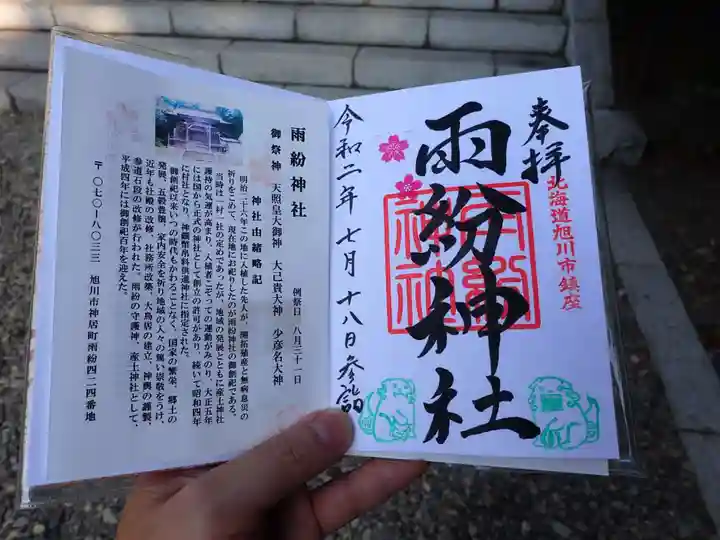 奉拝
北海道旭川市鎮座
雨紛神社
雨紛神社
令和二年七月十八日参詣
雨紛神社
例祭日 八月三十一日
御祭神 天照皇大御神 大己貴大神 少彦名大神
神社由緒略記
明治二十六年この地に入植した先人が、開拓殖産と無病息災の
祈りをこめて、現在地にお祀りしたのが雨紛神社の御創祀である。
当時は一村一社の定めであったが、地域の発展とともに産土神社
護持の気運が高まり、入植者こぞっての運動がみのり、大正五年
には国から正式の神社として創立の許可があり、続いて昭和四年
に村社となり、神饌幣帛料供進神社に指定された。
御創祀以来いつの時代もかわることなく、国家の繁栄、郷土の
発展、五穀豊穣、家内安全を祈り地域の人々の篤い崇敬をうけ、
近年も社殿の改修、社務所改築、大鳥居の建立、神輿の謹製、
参道石段の改修が行われた。雨紛の守護神、産土神社として、
平成四年には御創祀百年を迎えた。
〒〇七〇-八〇三三 旭川市神居町雨紛四二四番地